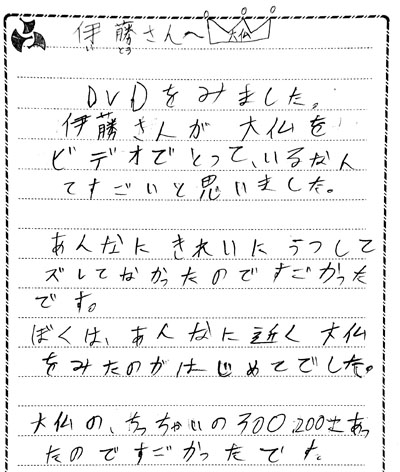 伊藤さんへ 大仏
いとう
DVDをみました。
伊藤さんが 大仏を
ビデオでとって、いるなん
てすごいと思いました。
あんなに きれいに うつして
ズレてなかったのですごかった
です。
ぼくは、あんなに近く 大仏
をみたのがはじめてでした。
大仏の、ちっちゃいの300、200こあっ
たのですごかったです。